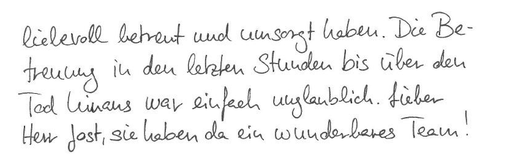 liebevoll betreut und umsorgt haben. Die Be-
treuung in den letzten Stunden bis über den
Tod hinaus war einfach unglaublich. Lieber
Herr Jost, sie haben da ein wunderbares Team!